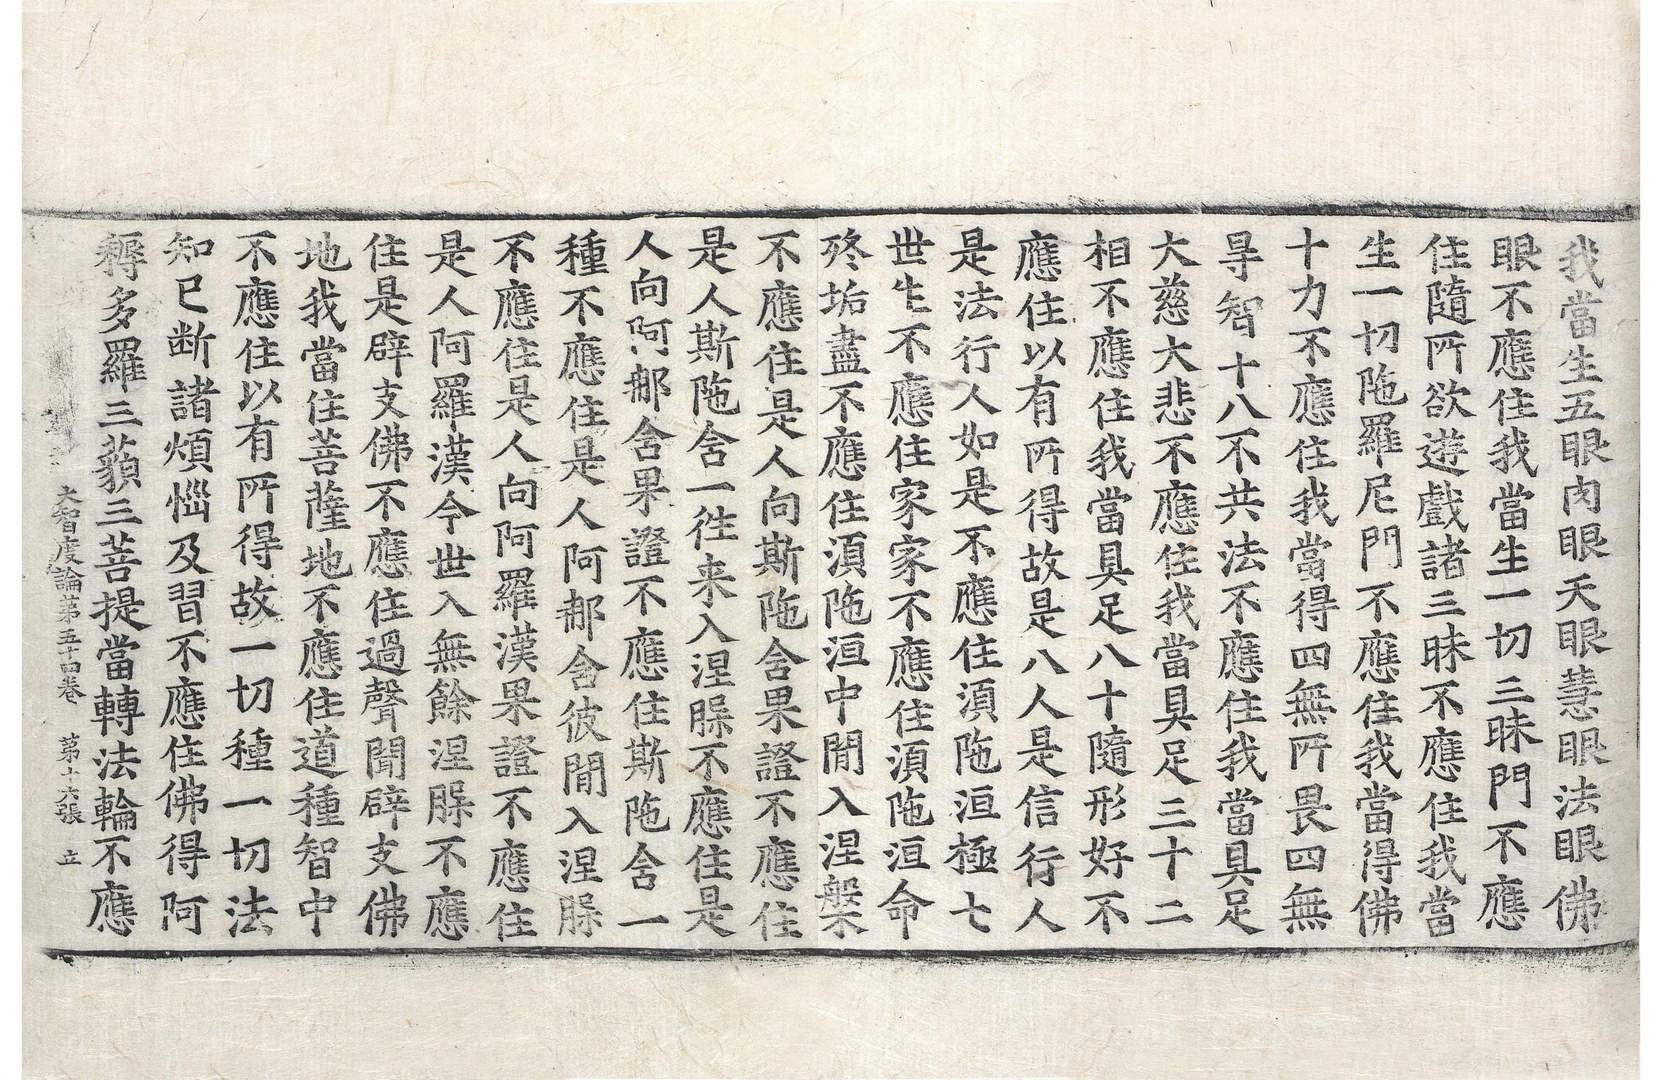 我當生五眼肉眼天眼慧眼法眼佛
眼不應住我當生一切三昧門不應
住隨所欲遊戲諸三昧不應住我當
生一切陁羅尼門不應住我當得佛
十力不應住我當得四無所畏四無
㝵智十八不共法不應住我當具足
大慈大悲不應住我當具足三十二
相不應住我當具足八十隨形好不
應住以有所得故是八人是信行人
是法行人如是不應住須陁洹極七
世生不應住家家不應住須陁洹命
終垢盡不應住須陁洹中閒入涅槃
不應住是人向斯陁含果證不應住
是人斯陁含一徃来入涅槃不應住是
人向阿那含果證不應住斯陁含一
種不應住是人阿那含彼閒入涅槃
不應住是人向阿羅漢果證不應住
是人阿羅漢今世入無餘涅槃不應
住是辟支佛不應住過聲聞辟支佛
地我當住菩薩地不應住道種智中
不應住以有所得故一切種一切法
知已断諸煩惱及習不應住佛得阿
耨多羅三藐三菩提當轉法輪不應
大智度論第五十四卷 第十六張 立